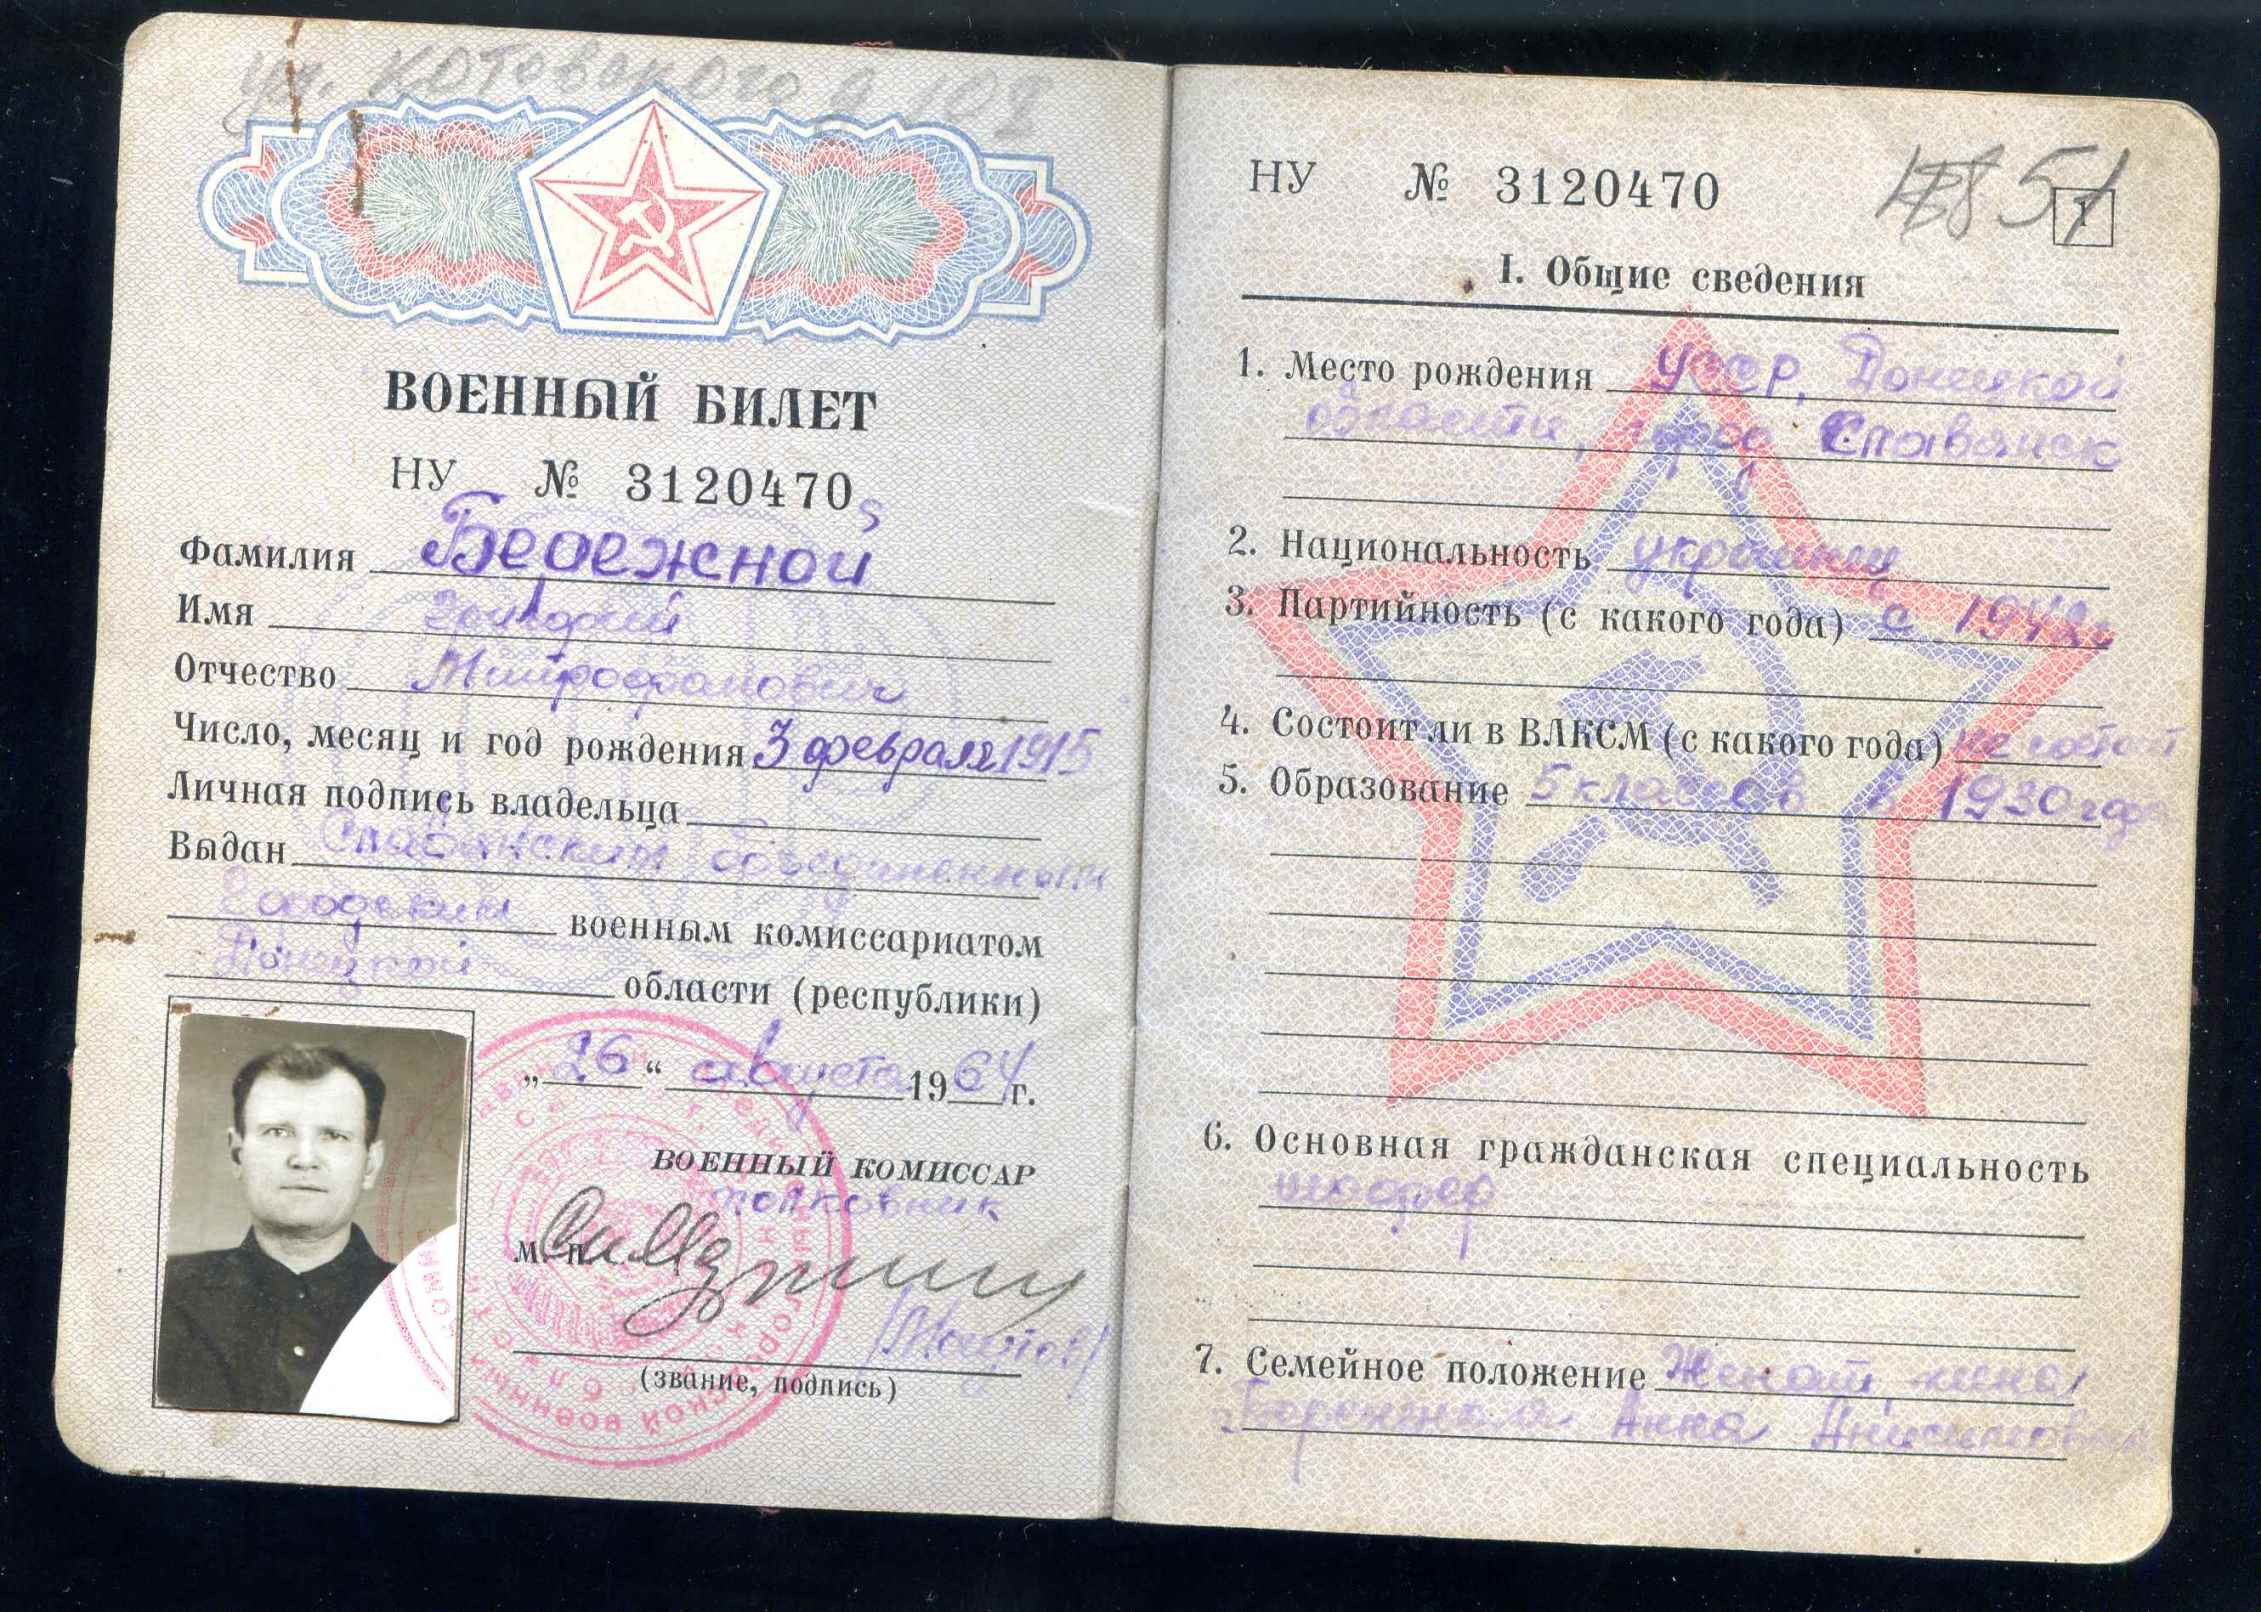 ул. Котовского д 102
ВОЕННЫЙ БИЛЕТ
НУ № 3120470
Фамилия Бережной
Имя Григорий
Отчество Митрофанович
Число, месяц и год рождения 3 февраля 1915
Личная подпись владельца
Выдан Славянским объединенным
Городским военным комиссариатом
Донецкой области (республики)
„26“ августа 1964 г.
ВОЕННЫЙ КОМИССАР
полковник
М. П.
(звание, подпись)
НУ № 3120470
51
1
I. Общие сведения
1. Место рождения УССР, Донецкой
области, город Славянск
2. Национальность украинец
3. Партийность (с какого года) с 1942г
4. Состоит ли в ВЛКСМ (с какого года) не состоит
5. Образование 5 классов в 1930 году
6. Основная гражданская специальность
шофер
7. Семейное положение Женат, жена
Бережная Анна Анисимовна